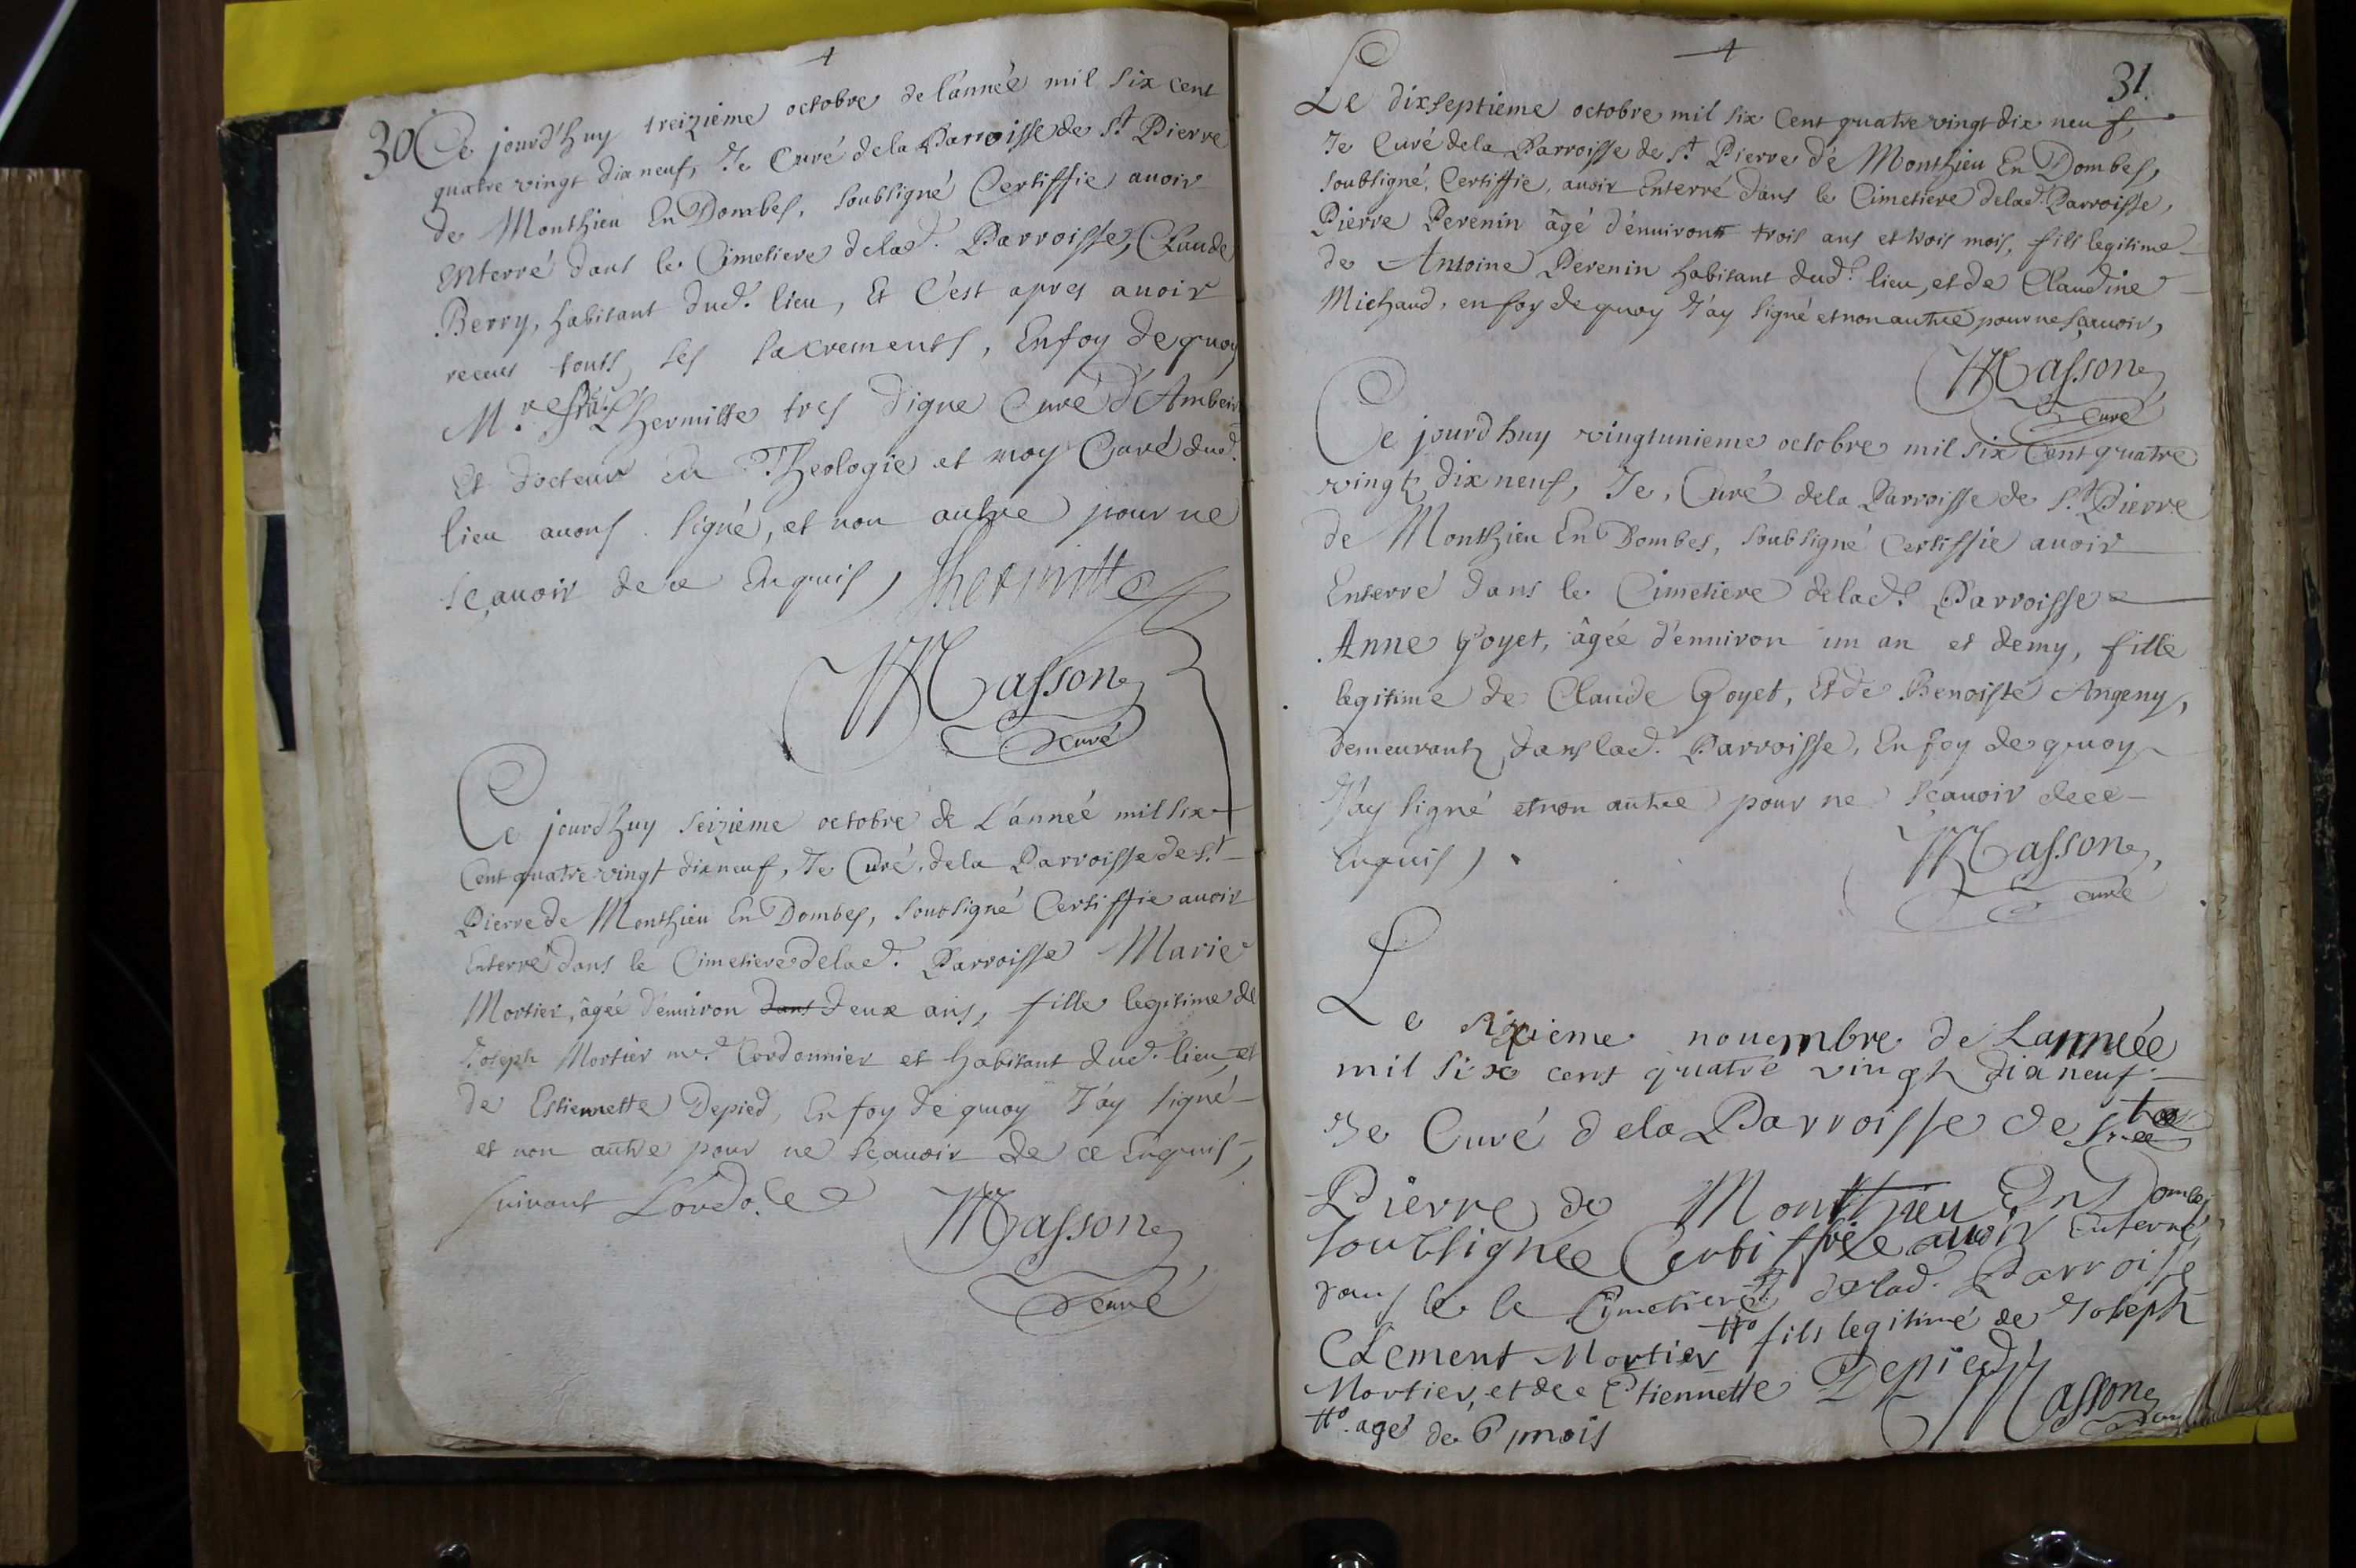 30
Ce jourd'huy treizième octobre de l'année mil six cent
quatre vingt dix neuf, Je Curé dela Parroisse de St Pierre
de Monthieu En Dombes, soubsigné Certiffie avoir
Enterré dans le Cimetiere delad. Parroisse, Claude
Berry, habitant dud. lieu, Et C'est apres avoir
receus touts ses sacrements, En foy de quoy
Mre Lhermitte tres digne Curé d'Amberi
Et docteur en Theologie et moy Curé dud.
lieu avons signé, et non autre pour ne
sçavoir de ce Enquis, Lhermitte
Masson
Curé
Ce jourd'huy seizième octobre de L'année mil six
Cent quatre vingt dix neuf, Je Curé dela Parroisse de St
Pierre de Monthieu En Dombes, soubsigné Certiffie avoir
Enterré dans le Cimetiere delad. Parroisse Marie
Mortier, âgée d'environ dans deux ans, fille legitime de
Joseph Mortier mre Cordonnier et habitant dud. lieu, et
de Estiennette Depied, En foy de quoy J'ay signé
et non autre pour ne sçavoir de ce Enquis,
suivant L'ordo.ce
Masson
Curé
31.
Le dixseptieme octobre mil six Cent quatre vingt dix neuf,
Je Curé dela Parroisse de St Pierre de Monthieu En Dombes,
soubsigné, Certiffie, avoir Enterré dans le Cimetiere delad. Parroisse,
Pierre Perenin âgé d'environ trois ans et trois mois, fils legitime
de Antoine Perenin habitant dud. lieu, et de Claudine
Michaud, en foy de quoy J'ay signé et non autre pour ne sçavoir,
Masson
Curé
Ce jourd'huy vingtunieme octobre mil six Cent quatre
vingt dix neuf, Je, Curé dela Parroisse de St Pierre
de Monthieu En Dombes, soubsigné Certiffie avoir
Enterré dans le Cimetiere delad. Parroisse
Anne Goyet, âgée d'environ un an et demy, fille
legitime de Claude Goyet, Et de Benoiste Angeny,
demeurants dans lad. Parroisse, En foy de quoy
J'ay signé et non autre pour ne sçavoir de ce
Enquis,
Masson,
curé
Le sixieme novembre de Lannéé
mil six cent quatre vingt dix neuf
Je Curé dela Parroisse de St
Pierre de Monthieu En Dombes
soubsigné Certiffie avoir Enterré
dans le le Cimetiere delad. Parroisse
Clement Mortier tto fils legitime de Joseph
Mortier, et de Etiennette Depied
Masson
tto. agé de 6 mois